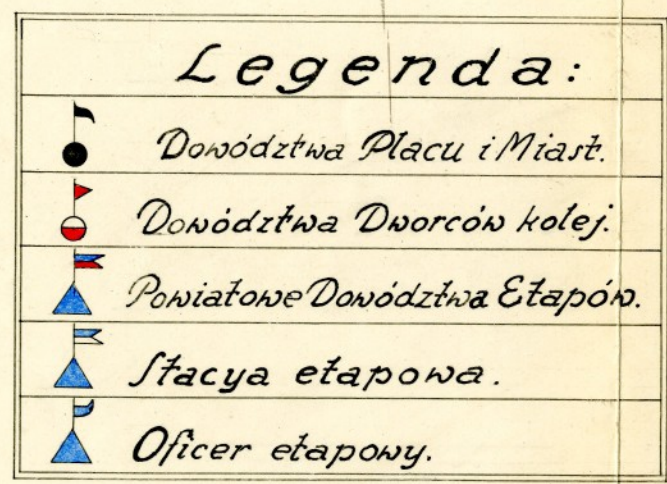 Legenda:
Dowództwa Placu i Miast.
Dowództwa Dworców kolej.
Powiatowe Dowództwa Etapów.
Stacya etapowa.
Oficer etapowy.